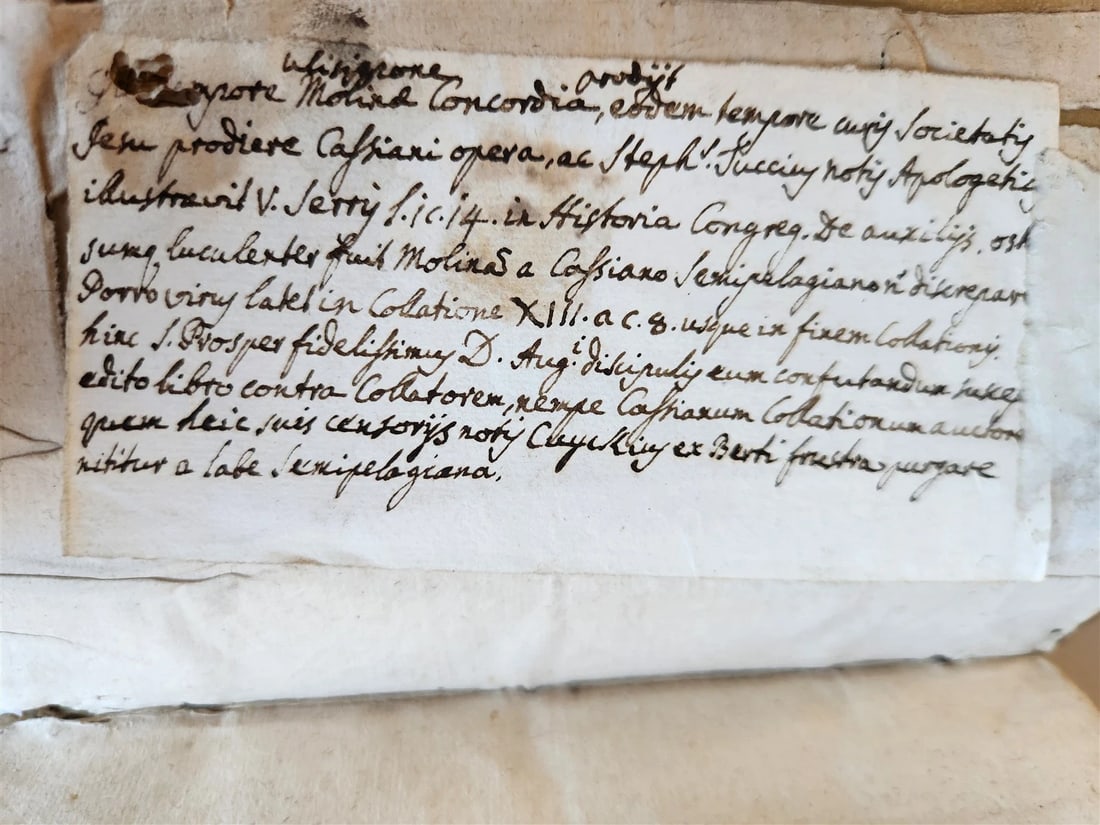 ulisippone prodijt
tempore Molinæ Concordia, eodem tempore curis Societatis
Jesu prodiere Cassiani opera, ac Steph.s Tuccius notis Apologetic
illustravit V. Serry l. 1 c. 14. in Historia Congreg. De auxilijs.
sumq luculenter fuit Molinas a Cassiano Semipelagiano discrepar
Porro virus latet in Collatione XIII. a c. 8. usque in finem Collationis.
hinc S. Prosper fidelissimus D. Aug.i discipulis eum confutandum
edito libro contra Collatorem, nempe Cassianum Collationum auctor
quem heic suis censorijs notis Cuyckius ex Berti frustra purgare
nititur a labe Semipelagiana.